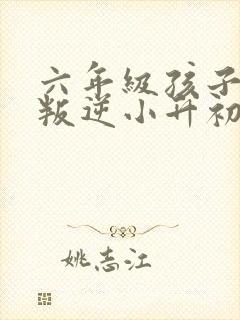 六年级孩子
叛逆小升初
姚志江